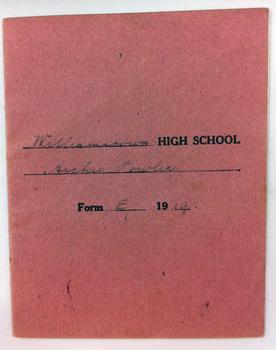 Williamstown HIGH SCHOOL
Archie Fowler
Form E, 1919.